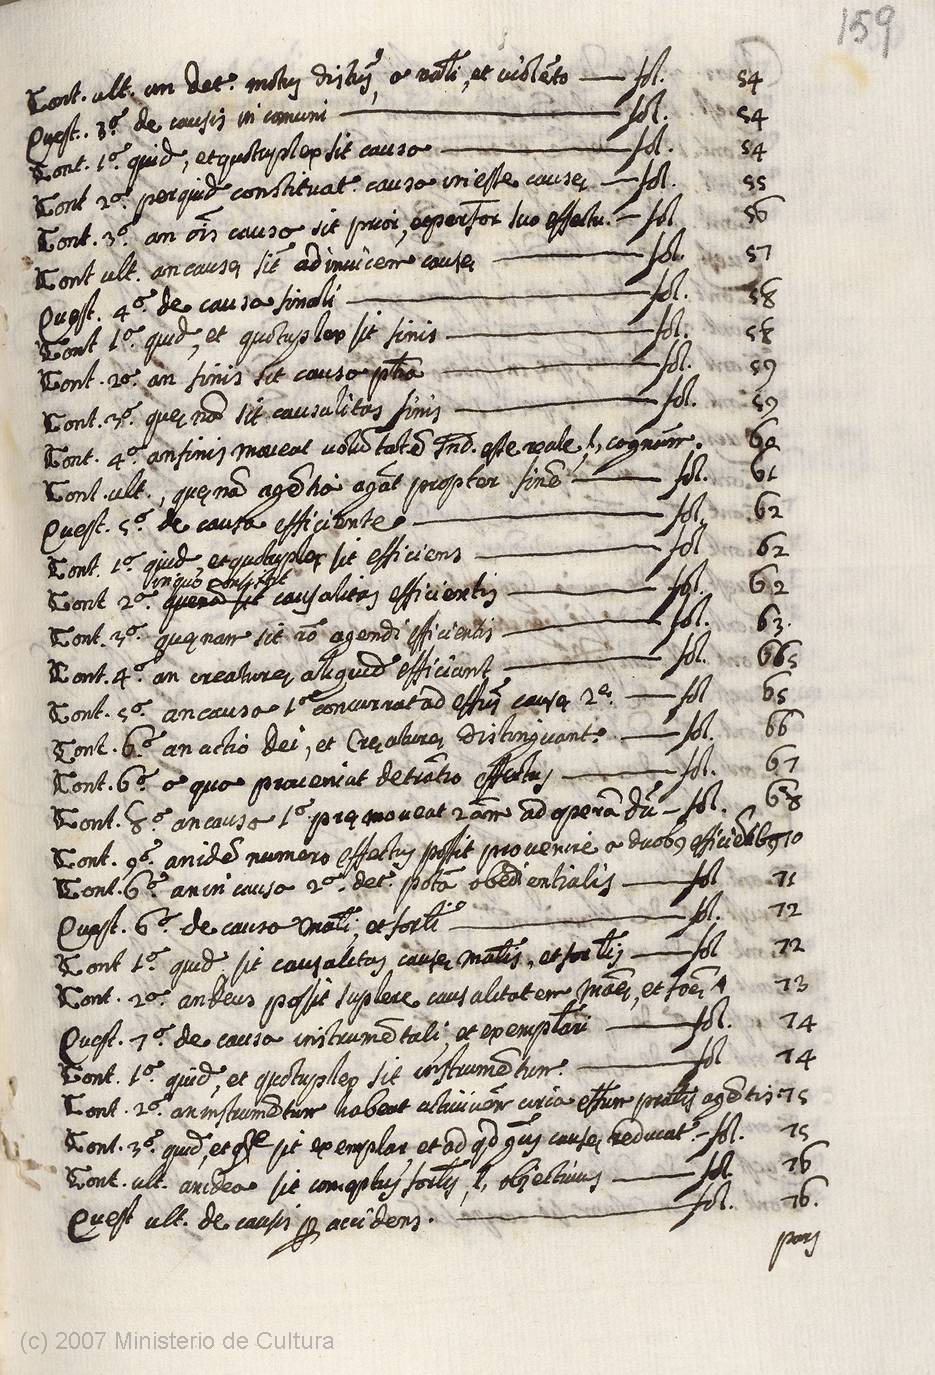 159
Cont. ult. an det. motus distūs, a nāli, et violēto — fol. 54
Quest. 3ª. de causis in comuni — fol. 54
Cont. 1ª. quid, et quotuplex sit causa — fol. 54
Cont 2ª. per quid constituat. causa in esse causę — fol. 55
Cont. 3ª. an oīs causa sit prior, et perfōr suo effectu. — fol 56
Cont ult. an causę sīt ad invicem causę — fol. 57
Quest. 4ª. de causa finali — fol. 58
Cont 1ª. quid, et quotuplex sit finis — fol. 58
Cont. 2ª. an finis sit causa — fol. 59
Cont. 3ª. quęnā sit causalitas finis — fol. 59
Cont. 4ª. an finis moveat volūtatē esse reale, l, cognitūm. 60
Cont. ult., quęnā agētia agāt propter finē — fol. 61
Quest. 5ª. de causa efficiente — fol. 62
Cont. 1ª. quid, et quotuplex sit efficiens — fol 62
in quo consistat
Cont 2ª. quenā sit causalitas efficientis — fol. 62
Cont. 3ª. quęnam sit rō agendi efficientis — fol. 63.
Cont. 4ª. an creaturę aliquid efficiant — fol. 665
Cont. 5ª. an causa 1ª concurrat ad effūs causę 2ę — fol 65
Cont. 6ª an actio dei, et Creaturę distinguant. — fol. 66
Cont. 6ª a qua proveniat detātio effectus — fol. 67
Cont. 8ª an causa 1ª pręmoveat 2ām ad operādū — fol. 68
Cont. 9ª. an idē numero effectus possit provenire a duobq efficiētibq 70
Cont. 6ª. an in causa 2ª. det. potā obedientialis — fol 71
Quest. 6ª. de causa māli, et forli — fol. 72
Cont 1ª. quid sit causalitas causę mālis, et forlis — fol 72
Cont. 2ª. an deus possit suplere causalitatem māę, et foę 73
Quest. 7ª. de causa instrumētali, et exemplari — fol. 74
Cont. 1ª. quid, et quotuplex sit instrumētum. — fol 74
Cont. 2ª. an instrumētum habeat activitām circa effūm agētis 75
Cont. 3ª. quid, et sit exemplar, et ad qd gūs causę reducat. — fol. 75
Cont. ult. an idea sit conceptus forlis, l, objectivus — fol 76
Quest ult. de causis p accidens. — fol. 76.
pars
(c) 2007 Ministerio de Cultura